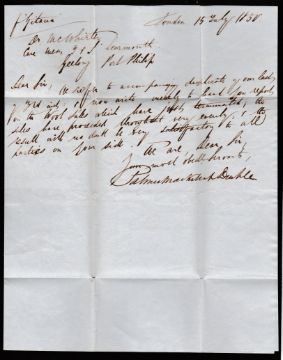 London 15 July 1858
Dr McWhirter
Care Messrs
Geelong Port Philip
Dear Sir, We refer to accompanying duplicate of our last,
and now write merely to hand you report,
on the Wool Sales which have just terminated, the
sales have proceeded throughout very evenly & the
result will no doubt be very satisfactory to all
parties on your side.
We are, Dear Sir
Your most obedt Servants,
Palmer Mackillop Dent &